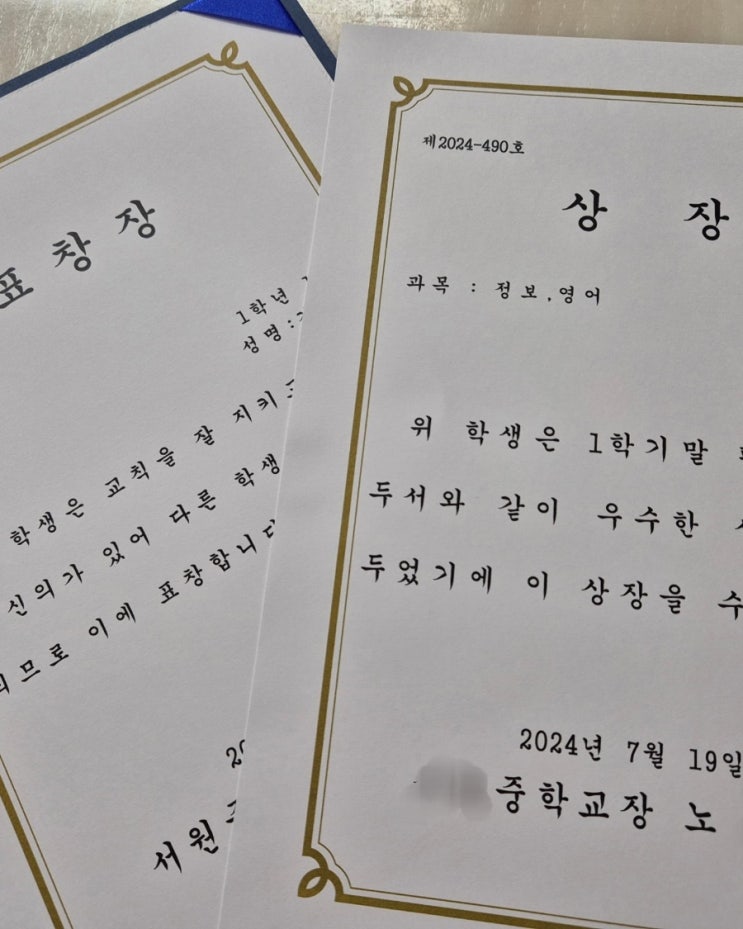 표창장
1학년
성명 :
학생은 교칙을 잘 지키고
신의가 있어 다른 학생
되므로 이에 표창합니다
서원
제2024-490호
상 장
과목 : 정보,영어
위 학생은 1학기말
두서와 같이 우수한
두었기에 이 상장을 수
2024년 7월 19일
중학교장 노